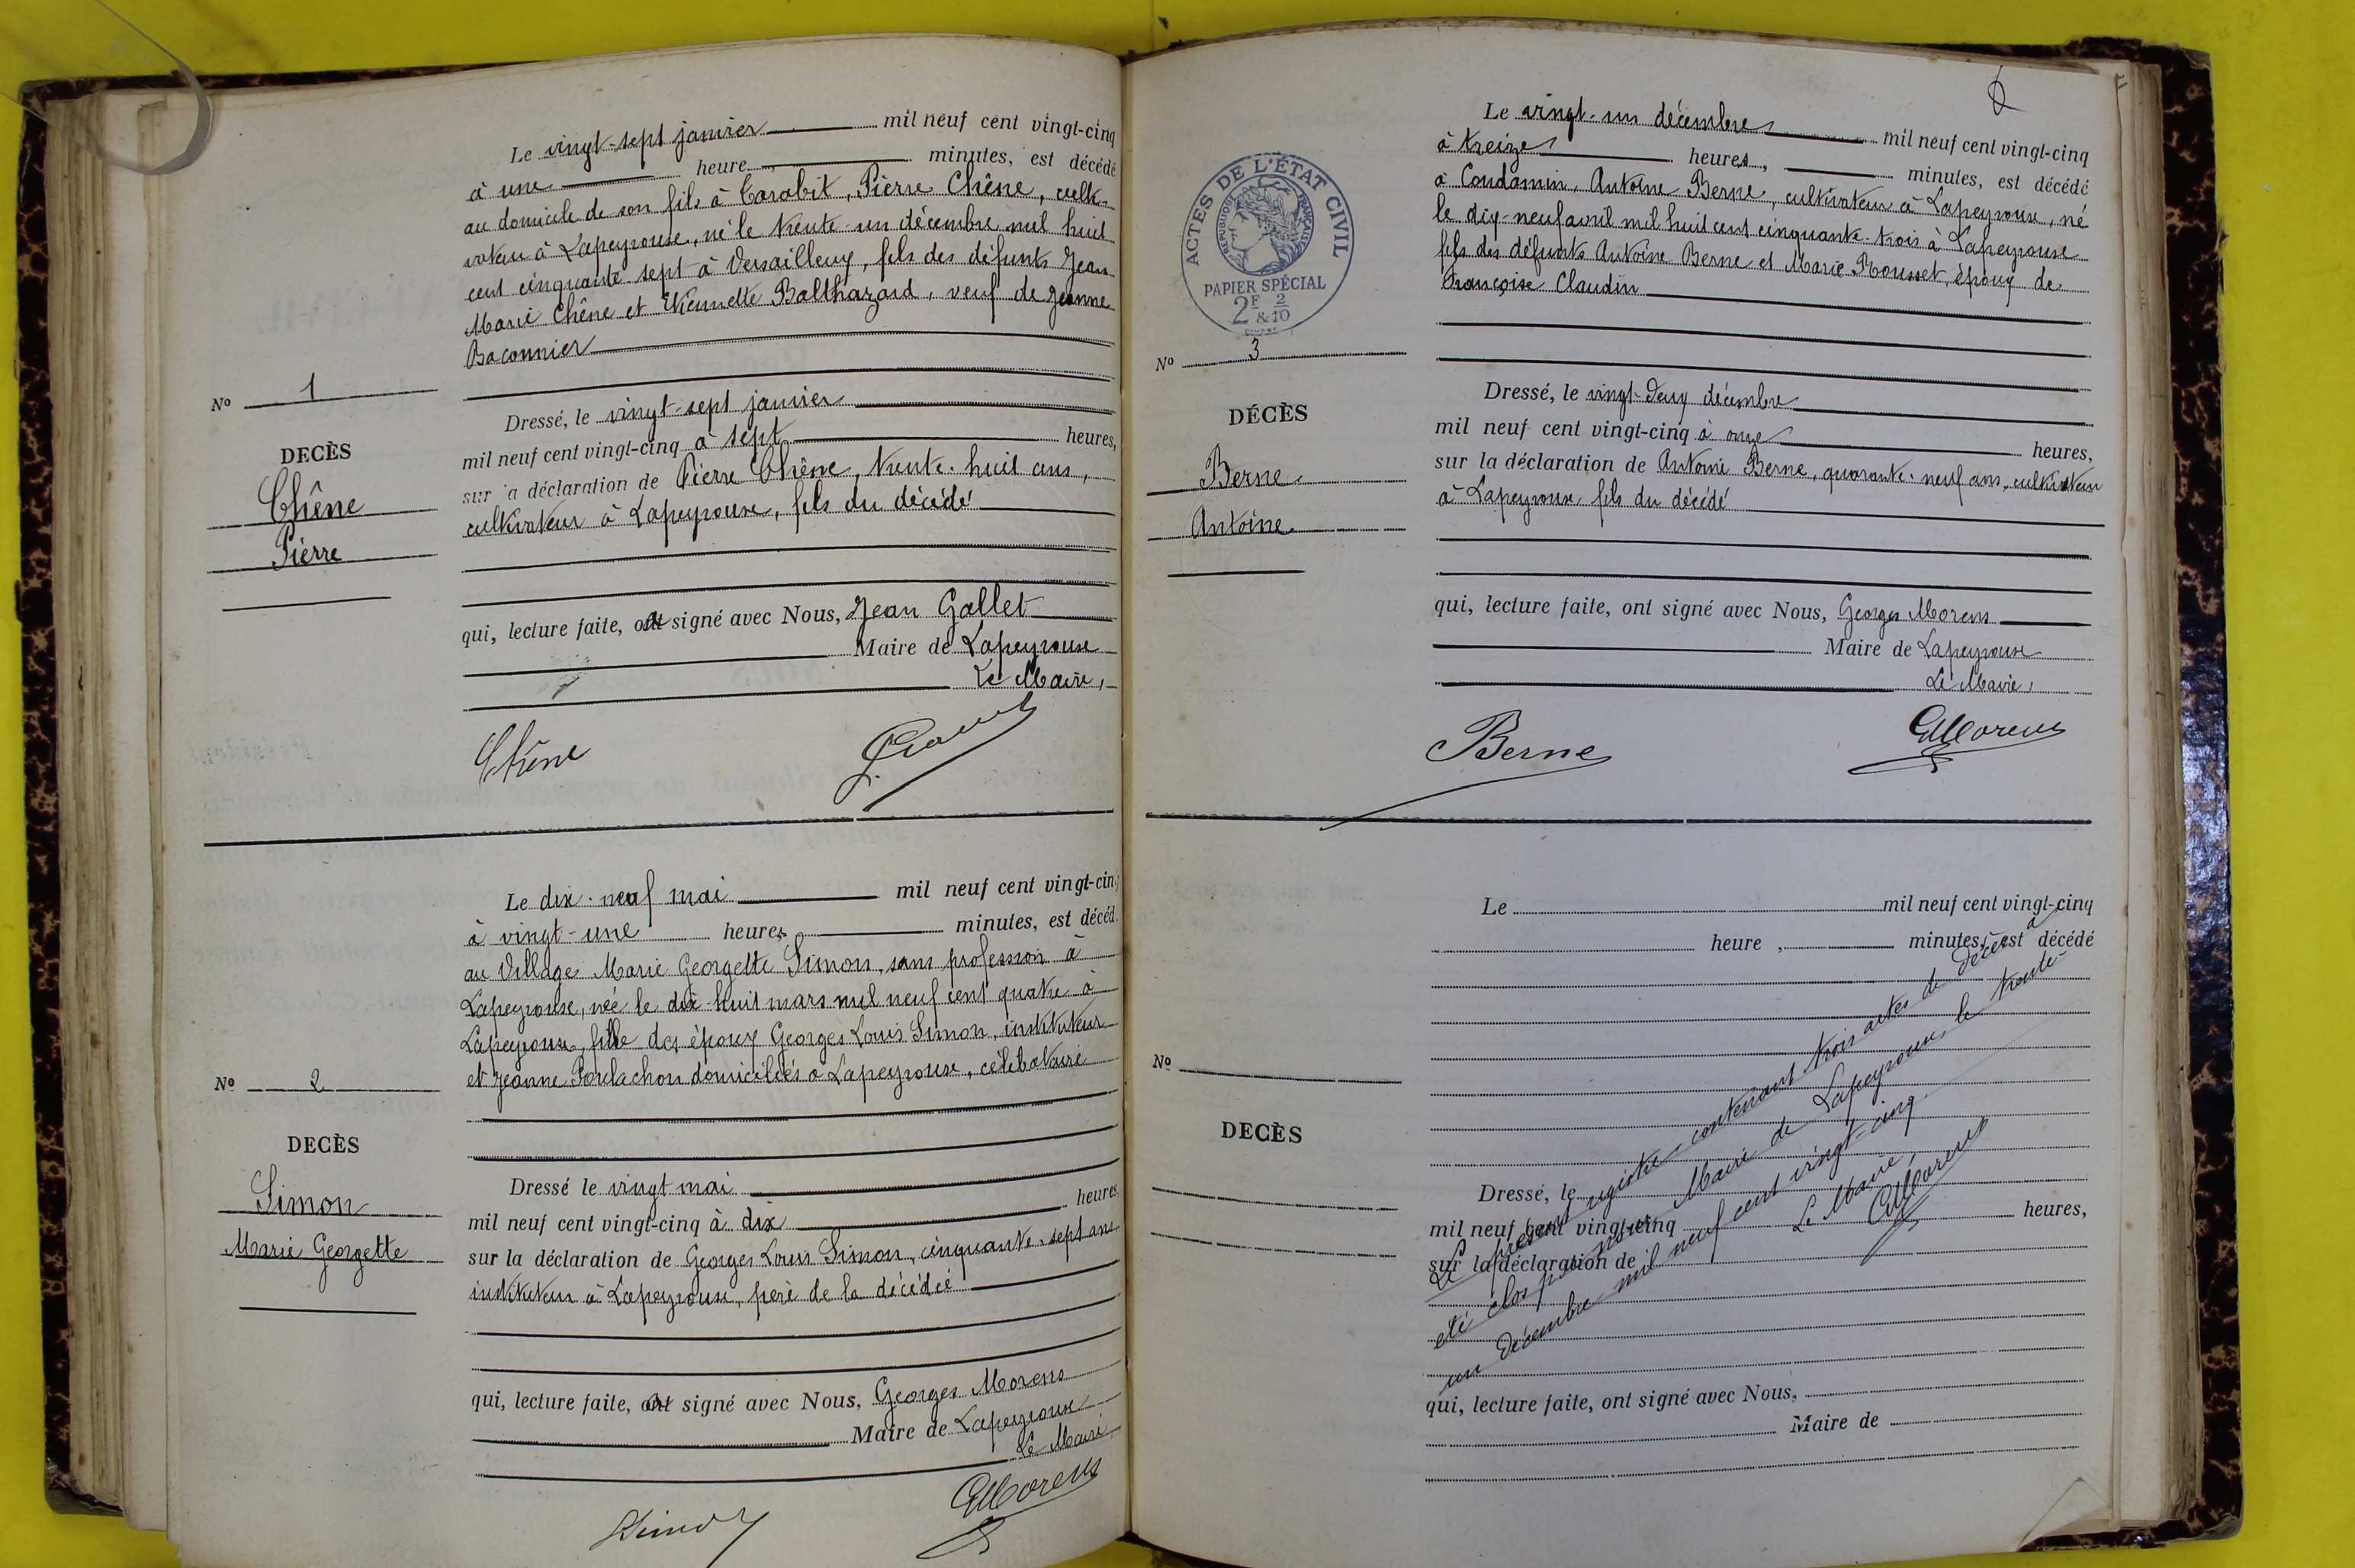 Le vingt-sept janvier mil neuf cent vingt-cinq
à une heure minutes, est décédé
au domicile de son fils à Carabit, Pierre Chêne, culti-
vateur à Lapeyrouse, né le trente-un décembre mil huit
cent cinquante-sept à Versailleux, fils des défunts Jean
Marie Chêne et Etiennette Balthazard, veuf de Jeanne
Baconnier
Nº 1
DECÈS
Chêne
Pierre
Dressé, le vingt-sept janvier
mil neuf cent vingt-cinq à sept heures,
sur la déclaration de Pierre Chêne, trente-huit ans,
cultivateur à Lapeyrouse, fils du décédé
qui, lecture faite, a signé avec Nous, Jean Gallet
Maire de Lapeyrouse
Le Maire,
Chêne
Le dix-neuf mai mil neuf cent vingt-cinq
à vingt-une heures minutes, est décéd
au Village Marie Georgette Simon, sans profession à
Lapeyrouse, née le dix-huit mars mil neuf cent quatre à
Lapeyrouse, fille des époux Georges Louis Simon, instituteur
et Jeanne Poulachon domiciliés à Lapeyrouse, célibataire
Nº 2
DECÈS
Simon
Marie Georgette
Dressé le vingt mai
mil neuf cent vingt-cinq à dix heures
sur la déclaration de Georges Louis Simon, cinquante-sept ans
instituteur à Lapeyrouse, père de la décédée
qui, lecture faite, a signé avec Nous, Georges Morens
Maire de Lapeyrouse
Le Maire
Simon GMorens
6
ACTES DE L'ÉTAT CIVIL
RÉPUBLIQUE FRANÇAISE
PAPIER SPÉCIAL
2F & 2/10
Le vingt-un décembre mil neuf cent vingt-cinq
à treize heures, minutes, est décédé
à Condamin, Antoine Berne, cultivateur à Lapeyrouse, né
le dix-neuf avril mil huit cent cinquante-trois à Lapeyrouse
fils des défunts Antoine Berne et Marie Rousset, époux de
Françoise Claudin
Nº 3
DÉCÈS
Berne
Antoine
Dressé, le vingt-deux décembre
mil neuf cent vingt-cinq à onze heures,
sur la déclaration de Antoine Berne, quarante-neuf ans, cultivateur
à Lapeyrouse fils du décédé
qui, lecture faite, ont signé avec Nous, Georges Morens
Maire de Lapeyrouse
Le Maire,
Berne GMorens
Le mil neuf cent vingt-cinq
heure , minutes, est décédé
Nº
DECÈS
Dressé, le
mil neuf cent vingt-cinq heures,
sur la déclaration de
qui, lecture faite, ont signé avec Nous,
Maire de
Le présent registre contenant trois actes de décès a
été clos par nous Maire de Lapeyrouse le trente-
un décembre mil neuf cent vingt-cinq
Le Maire,
GMorens